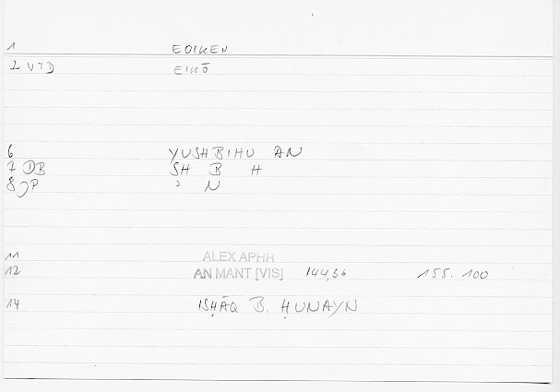 1 EOIKEN
2 VTD EIKŌ
6 YUSHBIHU AN
7 DB SH B H
8 JP ʾ N
11 ALEX APHR
12 AN MANT [VIS] 144,36 155.100
14 ISḤĀQ B. ḤUNAYN